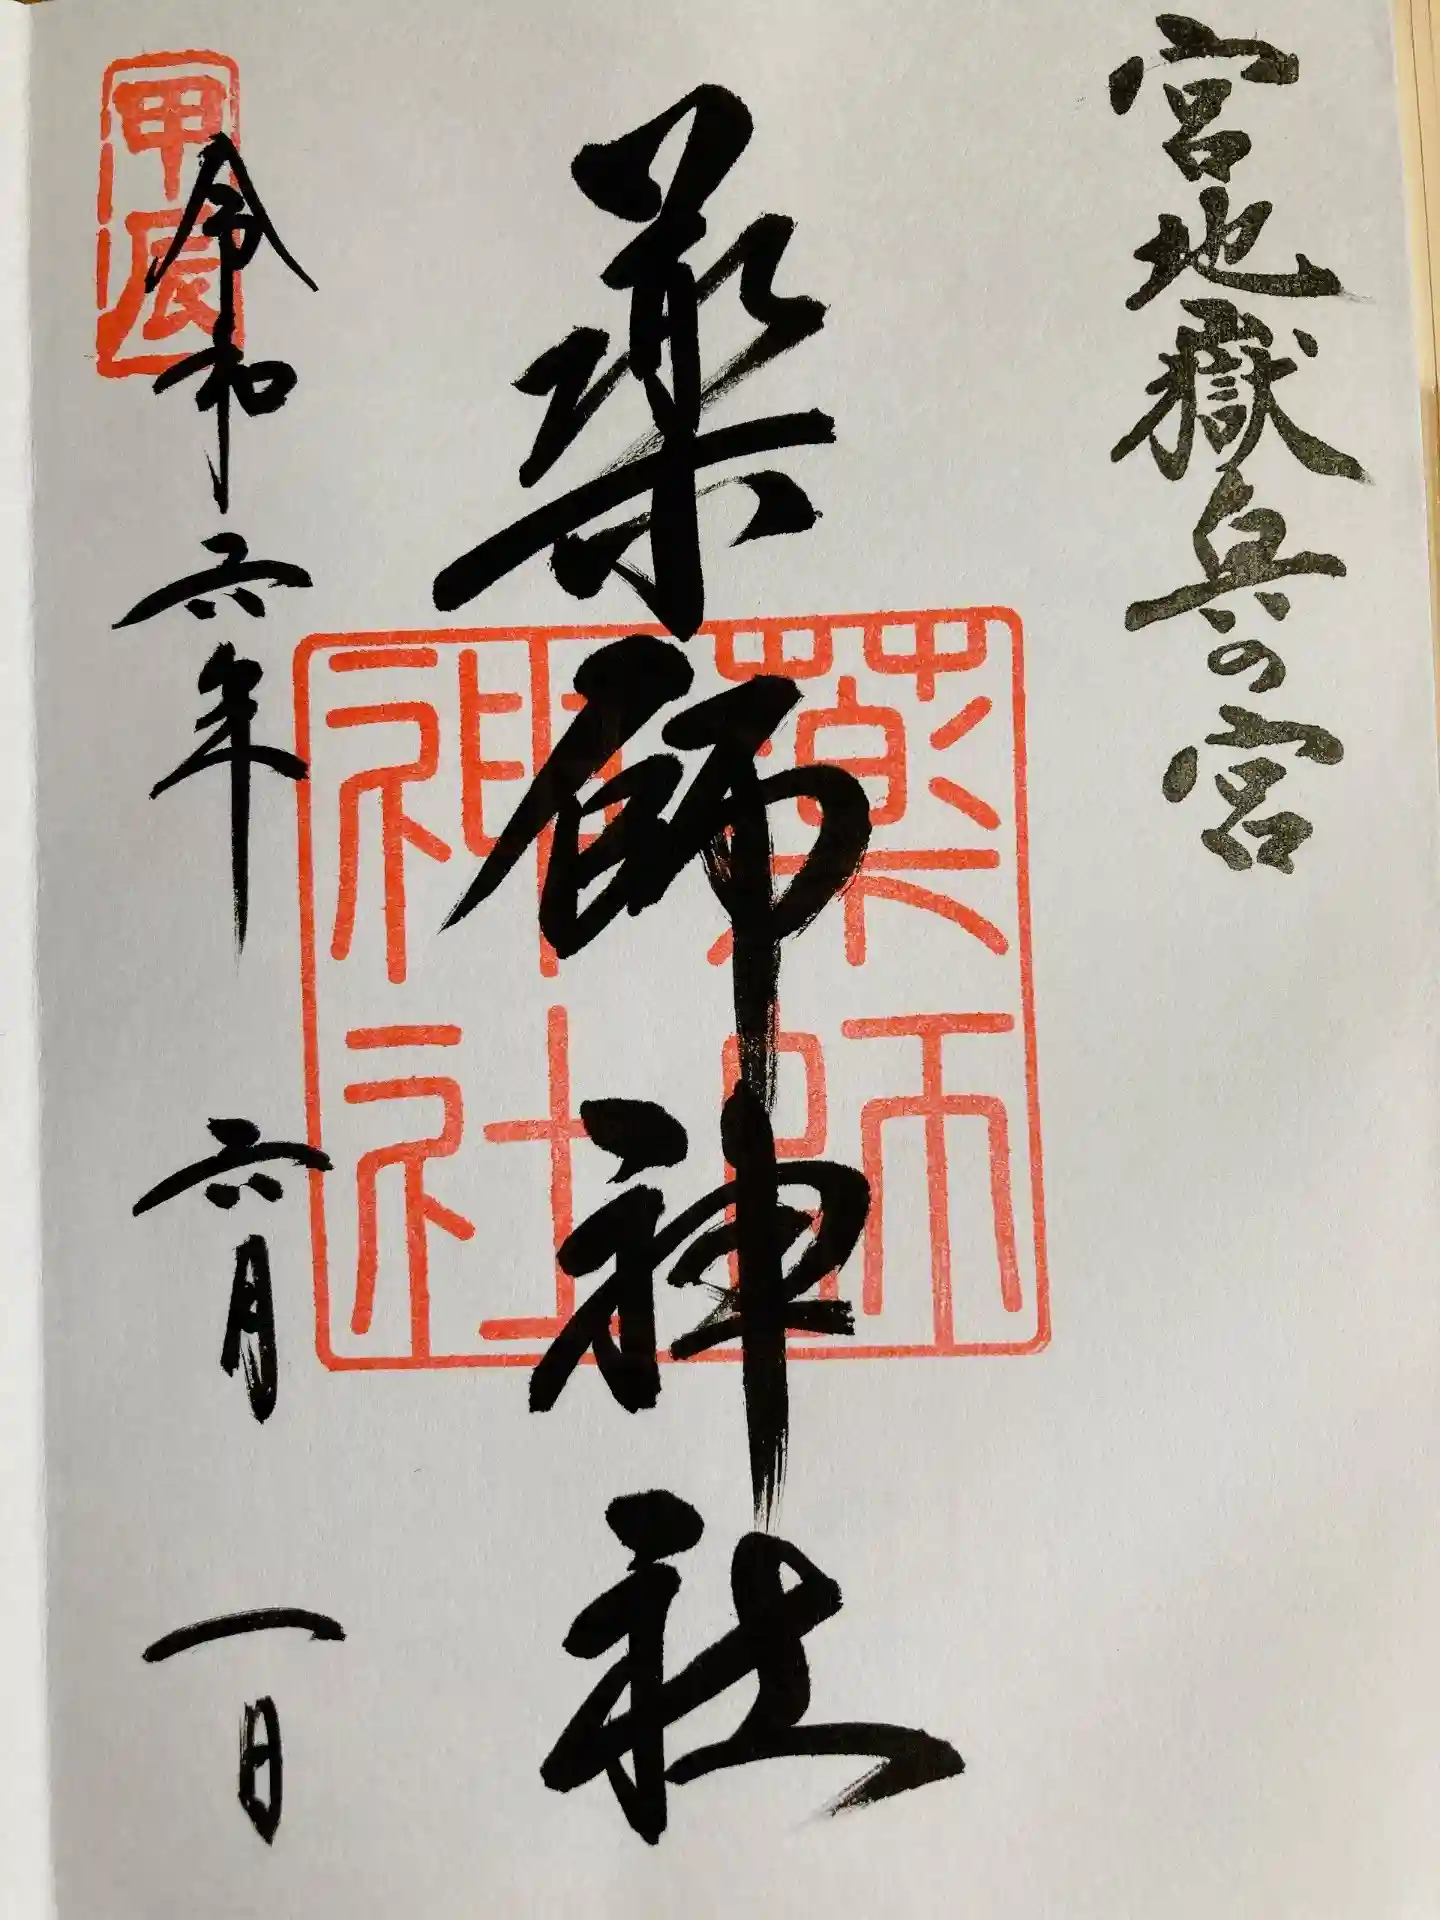 宮地嶽兵の宮
薬師神社
薬師
神社
令和六年 六月 一日
甲辰